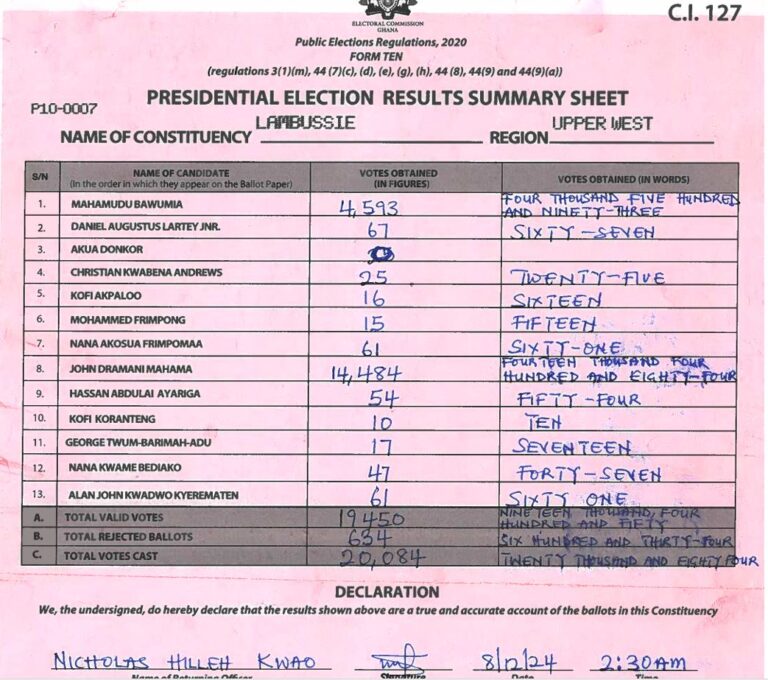 C.I. 127
ELECTORAL COMMISSION
GHANA
Public Elections Regulations, 2020
FORM TEN
(regulations 3(1)(m), 44 (7)(c), (d), (e), (g), (h), 44 (8), 44(9) and 44(9)(a))
P10-0007
PRESIDENTIAL ELECTION RESULTS SUMMARY SHEET
NAME OF CONSTITUENCY LAMBUSSIE REGION UPPER WEST
S/N NAME OF CANDIDATE (In the order in which they appear on the Ballot Paper) VOTES OBTAINED (IN FIGURES) VOTES OBTAINED (IN WORDS)
1. MAHAMUDU BAWUMIA 4,593 FOUR THOUSAND FIVE HUNDRED AND NINETY-THREE
2. DANIEL AUGUSTUS LARTEY JNR. 67 SIXTY-SEVEN
3. AKUA DONKOR
4. CHRISTIAN KWABENA ANDREWS 25 TWENTY-FIVE
5. KOFI AKPALOO 16 SIXTEEN
6. MOHAMMED FRIMPONG 15 FIFTEEN
7. NANA AKOSUA FRIMPOMAA 61 SIXTY-ONE
8. JOHN DRAMANI MAHAMA 14,484 FOURTEEN THOUSAND FOUR HUNDRED AND EIGHTY-FOUR
9. HASSAN ABDULAI AYARIGA 54 FIFTY-FOUR
10. KOFI KORANTENG 10 TEN
11. GEORGE TWUM-BARIMAH-ADU 17 SEVENTEEN
12. NANA KWAME BEDIAKO 47 FORTY-SEVEN
13. ALAN JOHN KWADWO KYEREMATEN 61 SIXTY ONE
A. TOTAL VALID VOTES 19450 NINETEEN THOUSAND, FOUR HUNDRED AND FIFTY
B. TOTAL REJECTED BALLOTS 634 SIX HUNDRED AND THIRTY-FOUR
C. TOTAL VOTES CAST 20,084 TWENTY THOUSAND AND EIGHTY FOUR
DECLARATION
We, the undersigned, do hereby declare that the results shown above are a true and accurate account of the ballots in this Constituency
NICHOLAS HILLEH KWAO 8/12/24 2:30AM
Name of Returning Officer Signature Date Time